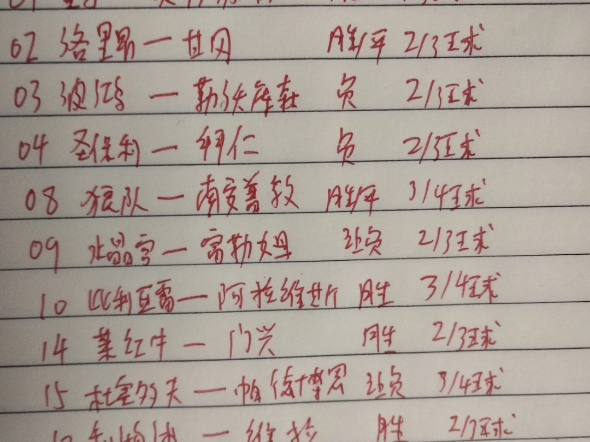 02 洛里昂一甘冈 胜/平 2/3球
03 波鸿 一 勒沃库森 负 2/3球
04 圣保利一 拜仁 负 2/3球
08 狼队 一 南安普敦 胜/平 3/4球
09 水晶宫一 富勒姆 让负 2/3球
10 比利亚雷一 阿拉维斯 胜 3/4球
14 莱红牛 一 门兴 胜 2/3球
15 杜塞多夫一帕德博恩 让负 3/4球
一 维拉 胜 2/3球